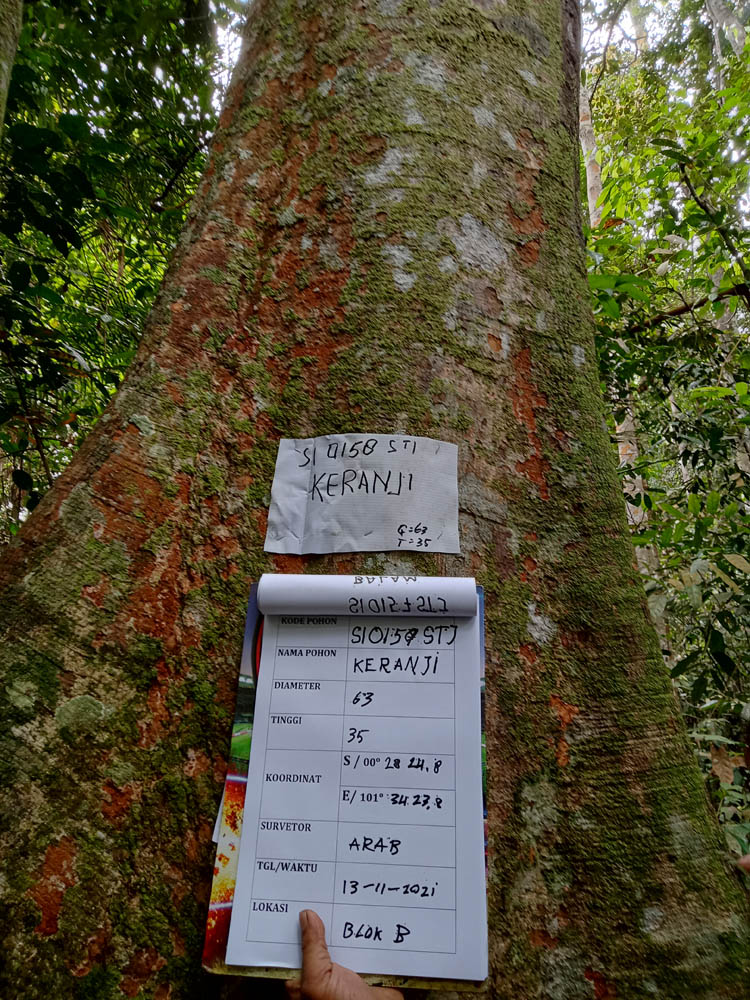 SI 0158 STJ
KERANJI
G=63
T=35
BALAM
KODE POHON SI 0158 STJ
NAMA POHON KERANJI
DIAMETER 63
TINGGI 35
KOORDINAT S / 00° 28 24,8
E/ 101° 34 23,8
SURVETOR ARAB
TGL/WAKTU 13-11-2021
LOKASI BLOK B